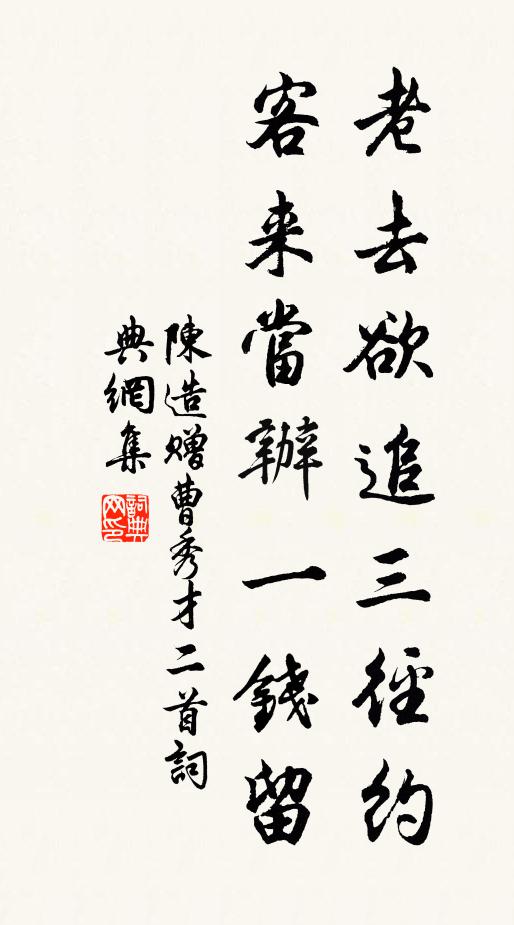 老去欲追三徑約
客来當辦一錢留
陳造贈曹秀才二首詞
典網集
詞典网印